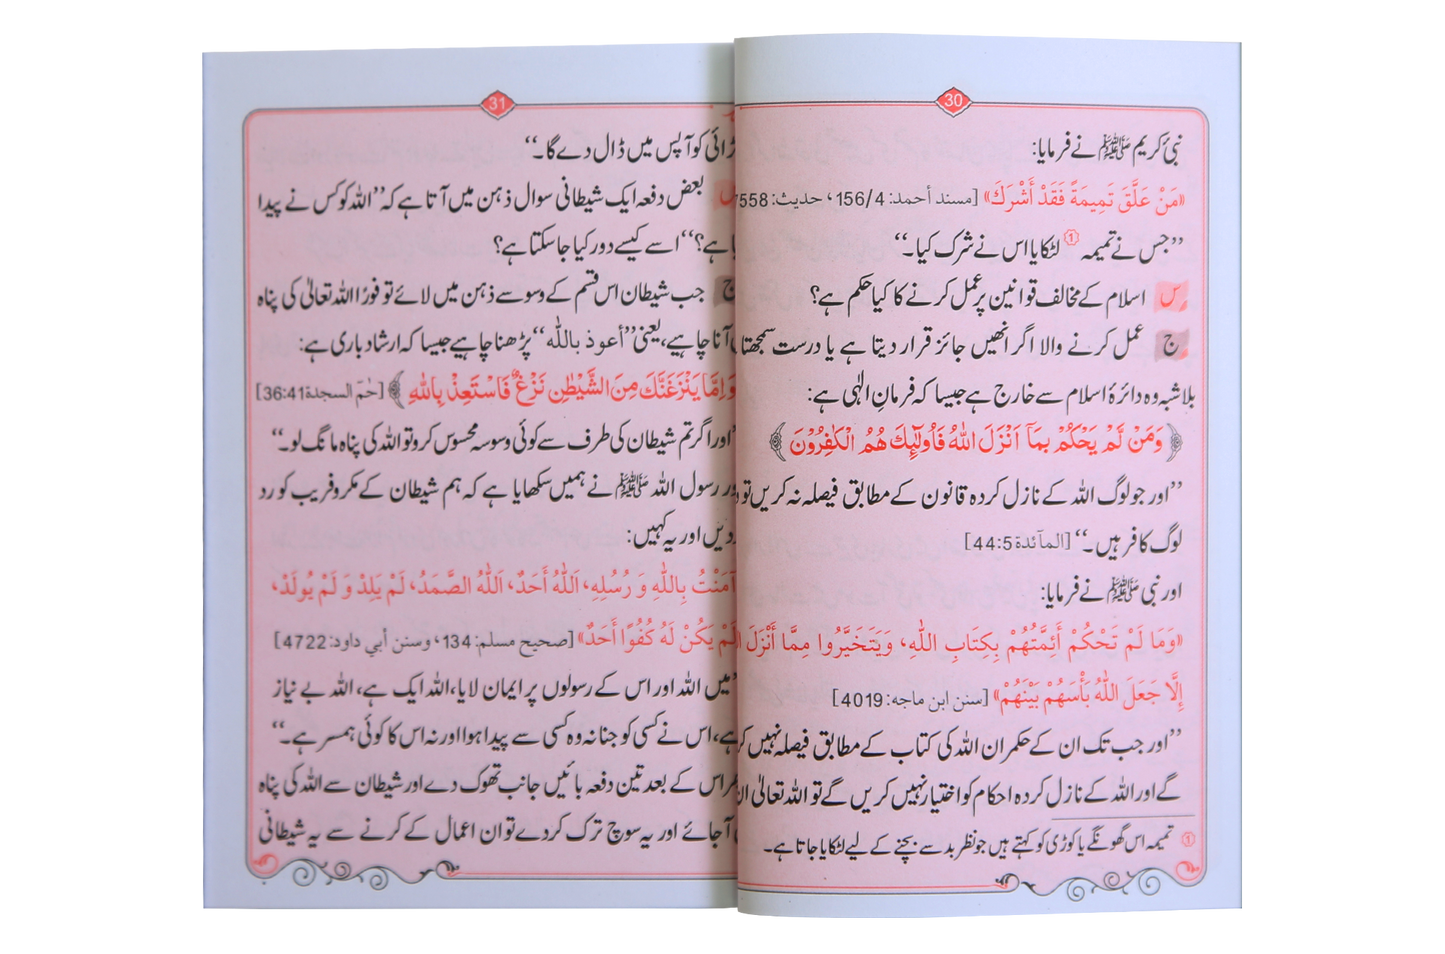 30
نبیٔ کریم ﷺ نے فرمایا:
«مَنْ عَلَّقَ تَمِيمَةً فَقَدْ أَشْرَكَ» [مسند أحمد: 156/4، حديث: 7558
”جس نے تمیمہ ① لٹکایا اس نے شرک کیا۔“
س اسلام کے مخالف قوانین پر عمل کرنے کا کیا حکم ہے؟
ج عمل کرنے والا اگر انھیں جائز قرار دیتا ہے یا درست سمجھتا
بلاشبہ وہ دائرۂ اسلام سے خارج ہے جیسا کہ فرمانِ الٰہی ہے:
﴿وَمَنْ لَّمْ يَحْكُمْ بِمَآ اَنْزَلَ اللّٰهُ فَاُولٰٓئِكَ هُمُ الْكٰفِرُوْنَ﴾
”اور جو لوگ اللہ کے نازل کردہ قانون کے مطابق فیصلہ نہ کریں تو
لوگ کافر ہیں۔“ [المآئدة 44:5]
اور نبی ﷺ نے فرمایا:
«وَمَا لَمْ تَحْكُمْ أَئِمَّتُهُمْ بِكِتَابِ اللّٰهِ، وَيَتَخَيَّرُوا مِمَّا أَنْزَلَ
إِلَّا جَعَلَ اللّٰهُ بَأْسَهُمْ بَيْنَهُمْ» [سنن ابن ماجه: 4019]
”اور جب تک ان کے حکمران اللہ کی کتاب کے مطابق فیصلہ نہیں
گے اور اللہ کے نازل کردہ احکام کو اختیار نہیں کریں گے تو اللہ تعالیٰ
① تمیمہ اس گھونگے یا کوڑی کو کہتے ہیں جو نظر بد سے بچنے کے لیے لٹکایا جاتا ہے۔
31
کو آپس میں ڈال دے گا۔“
س بعض دفعہ ایک شیطانی سوال ذہن میں آتا ہے کہ ”اللہ کو کس نے پیدا
ہے؟“ اسے کیسے دور کیا جا سکتا ہے؟
ج جب شیطان اس قسم کے وسوسے ذہن میں لائے تو فوراً اللہ تعالیٰ کی پناہ
آنا چاہیے، یعنی ”أعوذ بالله“ پڑھنا چاہیے جیسا کہ ارشاد باری ہے:
وَ اِمَّا يَنْزَغَنَّكَ مِنَ الشَّيْطٰنِ نَزْغٌ فَاسْتَعِذْ بِاللّٰهِ﴾ [حٰمٓ السجدة 36:41]
”اور اگر تم شیطان کی طرف سے کوئی وسوسہ محسوس کرو تو اللہ کی پناہ مانگ لو۔“
رسول اللہ ﷺ نے ہمیں سکھایا ہے کہ ہم شیطان کے مکر و فریب کو رد
دیں اور یہ کہیں:
آمَنْتُ بِاللّٰهِ وَ رُسُلِهِ، اَللّٰهُ أَحَدٌ، اَللّٰهُ الصَّمَدُ، لَمْ يَلِدْ وَ لَمْ يُولَدْ،
لَمْ يَكُنْ لَهُ كُفُوًا أَحَدٌ» [صحيح مسلم: 134، وسنن أبي داود: 4722]
”میں اللہ اور اس کے رسولوں پر ایمان لایا، اللہ ایک ہے، اللہ بے نیاز
ہے، اس نے کسی کو جنا نہ وہ کسی سے پیدا ہوا اور نہ اس کا کوئی ہمسر ہے۔“
اس کے بعد تین دفعہ بائیں جانب تھوک دے اور شیطان سے اللہ کی پناہ
آ جائے اور یہ سوچ ترک کر دے تو ان اعمال کے کرنے سے یہ شیطانی